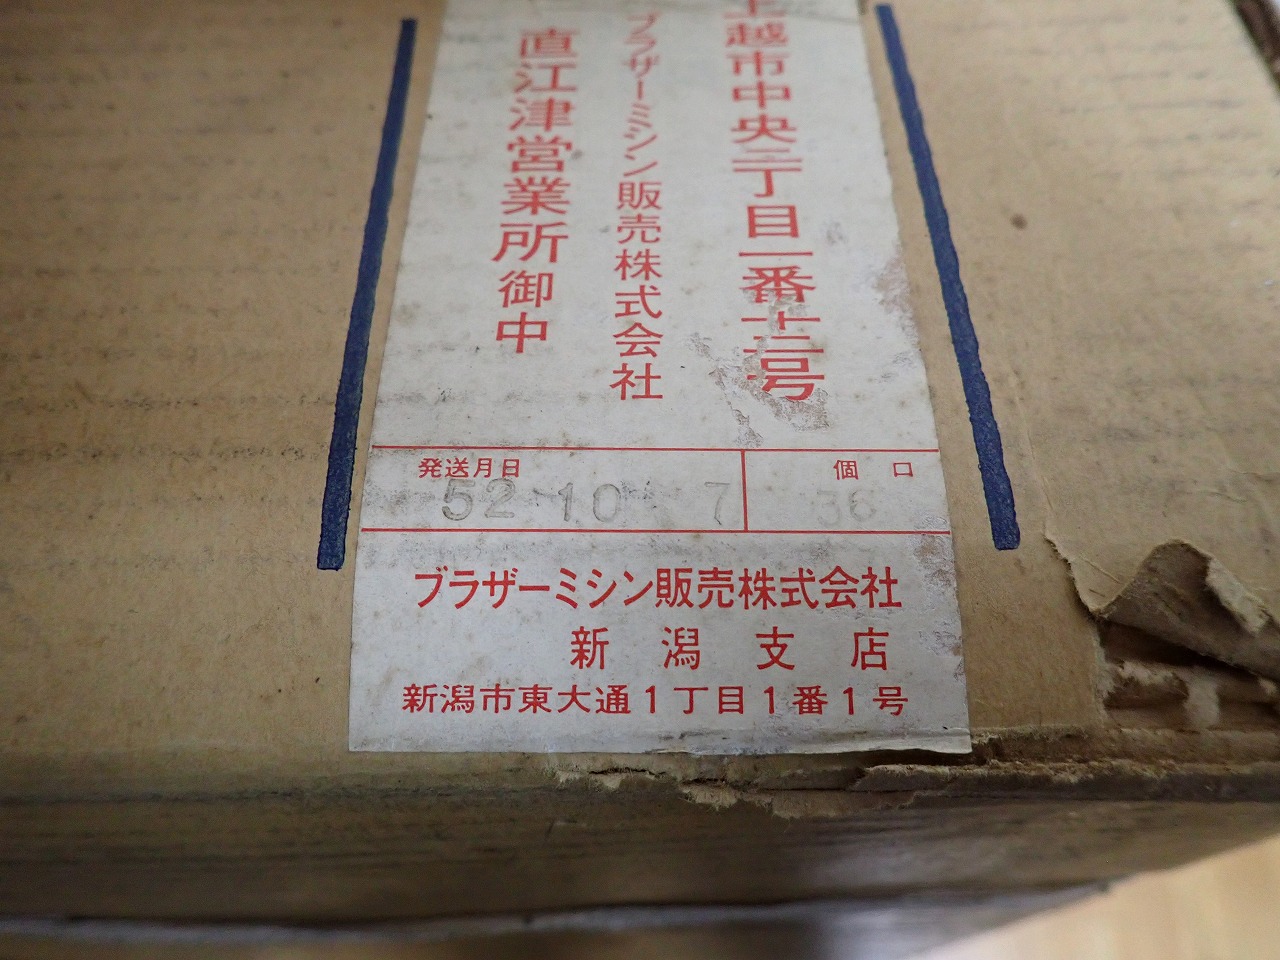 上越市中央二丁目一番十二号
ブラザーミシン販売株式会社
直江津営業所御中
発送月日
52 10 7
個口
36
ブラザーミシン販売株式会社
新潟支店
新潟市東大通1丁目1番1号